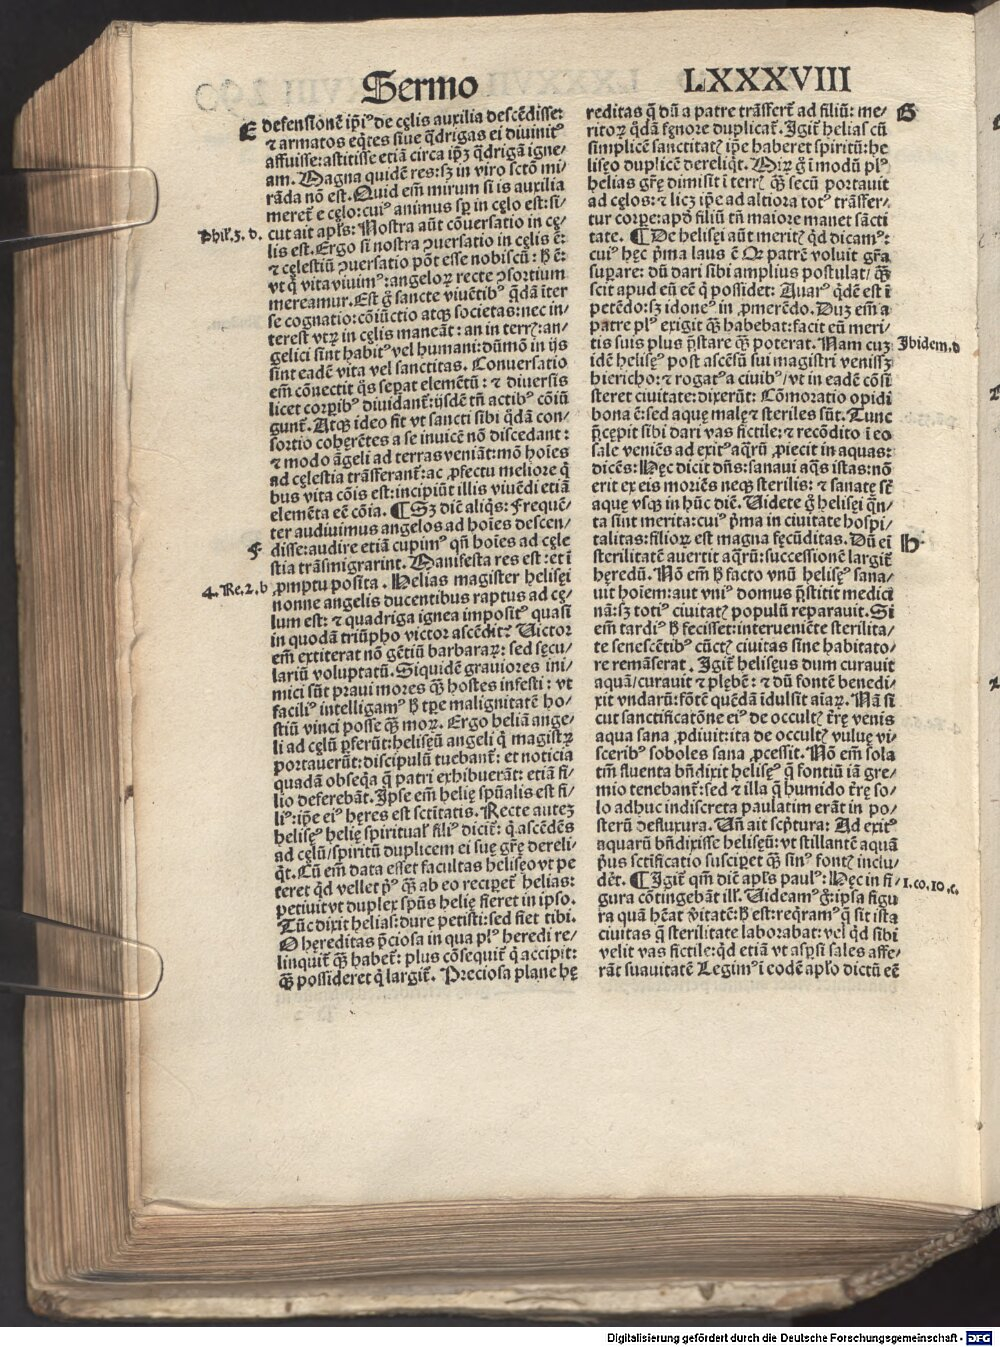 Sermo LXXXVIII
E defensionē ip̄iꝰ de cęlis auxilia descēdisse:
⁊ armatos eq̄tes siue q̄drigas ei diuinitꝰ
affuisse: astitisse etiā circa ip̄ꝫ q̄drigā igne/
am. Magna quidē res: sꝫ in viro sctō mi/
rāda nō est. Quid em̄ mirum si is auxilia
meret̄ e cęlo: cuiꝰ animus sp̄ in cęlo est: si/
Phil. 3. d. cut ait apl̄s: Nostra aūt cōuersatio in cę/
lis est. Ergo si nostra ꝯuersatio in cęlis ē:
⁊ cęlestiū ꝯuersatio pōt esse nobiscū: ħ ē:
vt q̇ vita viuimꝰ: angeloꝝ recte ꝯsortium
mereamur. Est ḡ sancte viuētibꝰ q̄dā īter
se cognatio: cōiūctio atqꝫ societas: nec in/
terest vtꝝ in cęlis maneāt: an in terrꝭ: an/
gelici sint habitꝰ vel humani: dūmō in ijs
sint eadē vita vel sanctitas. Conuersatio
em̄ cōnectit q̇s sepat elemētū: ⁊ diuersis
licet corꝑibꝰ diuidant̄: ijsdē tn̄ actibꝰ cōiū
gunt̄. Atqꝫ ideo fit vt sancti sibi q̄dā con/
sortio cohęrētes a se inuicē nō discedant:
⁊ modo āgeli ad terras veniāt: mō hoīes
ad cęlestia trāsferant̄: ac ꝓfectu meliore q̇
bus vita cōis est: incipiūt illis viuēdi etiā
elemēta eē cōia. ¶ Sꝫ diē aliq̇s: Frequē/
ter audiuimus angelos ad hoīes descen/
F disse: audire etiā cupimꝰ qn̄ hoīes ad cęle
stia trāsmigrarint. Manifesta res est: et ī
4. Re. 2. b ꝓmptu posita. Helias magister helisęi
nonne angelis ducentibus raptus ad cę/
lum est: ⁊ quadriga ignea impositꝰ quasi
in quodā triūpho victor ascēdit? Victor
em̄ extiterat nō gētiū barbaraꝝ: sed sęcu/
lariū voluptatū. Siquidē grauiores ini/
mici sūt praui mores q̄ꝫ hostes infesti: vt
faciliꝰ intelligamꝰ ħ tꝑe malignitatē ho/
stiū vinci posse q̄ꝫ moꝝ. Ergo heliā ange/
li ad cęlū ꝑferūt: helisęū angeli q̇ magistꝝ
portauerūt: discipulū tuebant̄: et noticia
quadā obseq̄a q̄ patri exhibuerāt: etiā fi/
lio deferebāt. Ipse em̄ helię spūalis est fi/
liꝰ: ip̄e eiꝰ hęres est sctītatis. Recte auteꝫ
helisęꝰ helię spiritual̄ filiꝰ dicit̄: q̇ ascēdēs
ad cęlū/ spiritū duplicem ei suę gr̄ę dereli/
q̇t. Cū em̄ data esset facultas helisęo vt pe
teret q̇d vellet pꝰ q̄ꝫ ab eo reciꝑet̄ helias:
petiuit vt duplex spūs helię fieret in ipso.
Tūc dixit helias: dure petisti: sed fiet tibi.
O hęreditas p̄ciosa in qua plꝰ heredi re/
linquit̄ q̄ꝫ habet̄: plus cōsequit̄ q̇ accipit:
q̄ꝫ possideret q̇ largit̄. Preciosa plane hę
reditas q̄ dū a patre trāsfert̄ ad filiū: me/ G
ritoꝝ q̄dā fęnore duplicat̄. Igit̄ helias cū
simplicē sanctitatꝭ ip̄e haberet spiritū: he
lisęo duplicē dereliq̇t. Miꝝ ḡ ī modū plꝰ
helias gr̄ę dimisit ī terrꝭ q̄ꝫ secū portauit
ad cęlos: ⁊ licꝫ ip̄e ad altiora totꝰ trāsfer/
tur corꝑe: apd̄ filiū tn̄ maiore manet sācti
tate. ¶ De helisęi aūt meritꝭ q̇d dicamꝰ:
cuiꝰ hęc pr̄ma laus ē Qꝫ patrē voluit gr̄a
suꝑare: dū dari sibi amplius postulat/ q̄ꝫ
scit apud eū eē q̇ possidet: Auarꝰ q̇dē est ī
petēdo: sꝫ idoneꝰ in ꝓmerēdo. Duꝫ em̄ a
patre plꝰ exigit q̄ꝫ habebat: facit eū meri/
tis suis plus p̄stare q̄ꝫ poterat. Nam cuꝫ Ibidem. d
idē helisęꝰ post ascēsū sui magistri venissꝫ
hiericho: ⁊ rogatꝰ a ciuibꝰ/ vt in eadē cōsi
steret ciuitate: dixerūt: Cōmoratio opidi
bona ē: sed aquę malę ⁊ steriles sūt. Tunc
p̄cępit sibi dari vas fictile: ⁊ recōdito ī eo
sale veniēs ad exitꝰ aq̄rū ꝓiecit in aquas:
dicēs: Hęc dicit dn̄s: sanaui aq̄s istas: nō
erit ex eis moriēs neqꝫ sterilis: ⁊ sanatę sē
aquę vsqꝫ in hūc diē. Videte ḡ helisęi q̄n/
ta sint merita: cuiꝰ pr̄ma in ciuitate hospi/
talitas: filioꝝ est magna fęcūditas. Dū eī H
sterilitatē auertit aq̄rū: successionē largit̄
hęredū. Nō em̄ ħ facto vnū helisęꝰ sana/
uit hoīem: aut vniꝰ domus p̄stitit medici
nā: sꝫ totiꝰ ciuitatꝭ populū reparauit. Si
em̄ tardiꝰ ħ fecisset: interueniēte sterilita/
te senescētibꝰ cūctꝭ ciuitas sine habitato/
re remāserat. Igit̄ helisęus dum curauit
aquā/ curauit ⁊ plębē: ⁊ dū fontē benedi/
xit vndarū: fōtē quēdā īdulsit aīaꝝ. Nā si
cut sanctificatōne eiꝰ de occultꝭ tr̄ę venis
aqua sana ꝓdiuit: ita de occultꝭ vuluę vi/
sceribꝰ soboles sana ꝓcessit. Nō em̄ sola
tm̄ fluenta bn̄dixit helisęꝰ q̄ fontiū iā gre/
mio tenebant̄: sed ⁊ illa q̄ humido tr̄ę so/
lo adhuc indiscreta paulatim erāt in po/
sterū defluxura. Vn̄ ait scp̄tura: Ad exitꝰ
aquarū bn̄dixisse helisęū: vt stillantē aquā
pr̄us sctīficatio suscipet q̄ꝫ sinꝰ fontꝭ inclu/
dēt. ¶ Igit̄ qm̄ diē apl̄s paulꝰ: Hęc in fi/ 1. co. 10. c.
gura cōtingebāt ill̄. Videamꝰ ḡ: ipsa figu
ra quā hēat v̄itatē: ħ est: req̄ramꝰ q̄ sit ista
ciuitas q̄ sterilitate laborabat: vel q̇d sibi
velit vas fictile: q̇d etiā vt asꝑsi sales affe/
rāt suauitatē Legimꝰ ī eodē apl̄o dictū eē
Digitalisierung gefördert durch die Deutsche Forschungsgemeinschaft - DFG